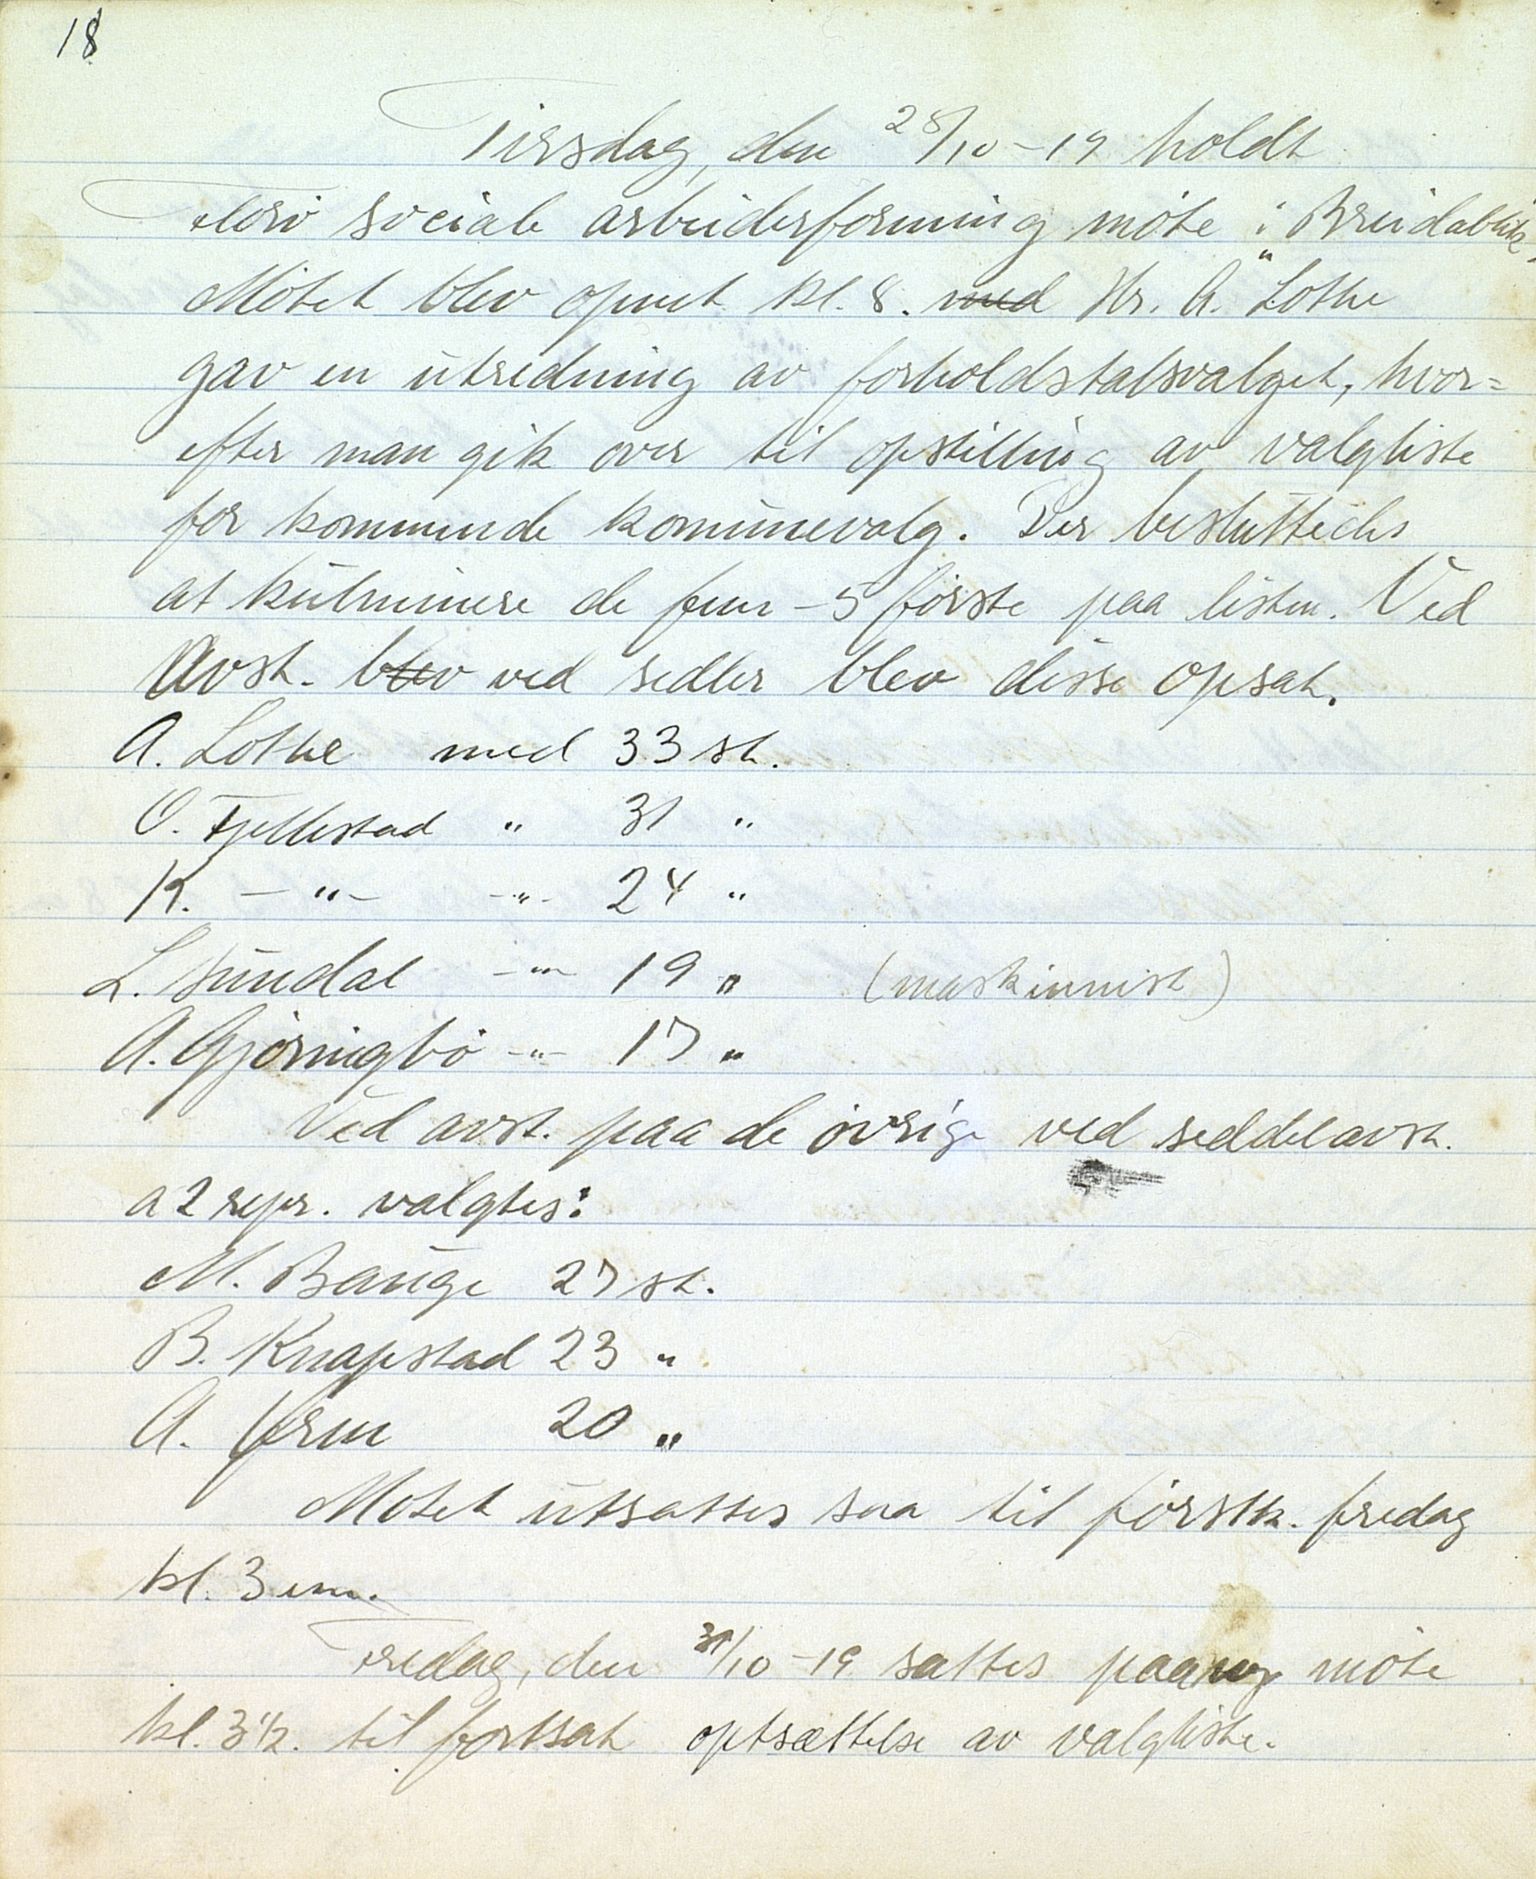 18
Tirsdag, den 28/10-19 holdt
Florø sociale arbeiderforening møte i "Breidablik"
Møtet blev opnet kl. 8. med Hr. A. Lothe
gav en utredning av forholdstalsvalget, hvor=
efter man gik over til opstilling av valgliste
for kommende komunevalg. Der besluttedes
at kulminere de fem - 5 første paa listen. Ved
Avst. blev ved sedler blev disse opsat.
A. Lothe med 33 st.
O. Fjellestad " 31 "
K. - " - - " - 24 "
L. Sundal - " - 19 " (maskinnist)
A. Gjørnigbø - " - 17 "
Ved avst. paa de øvrige ved seddelavst.
a 2 repr. valgtes:
M. Bauge 27 st.
B. Knapstad 23 "
A. Grm 20 "
Møtet utsattes saa til førstk. fredag
kl. 3 em.
Fredag, den 31/10-19 sattes paany møte
kl. 3½. til fortsat optsættelse av valgliste.